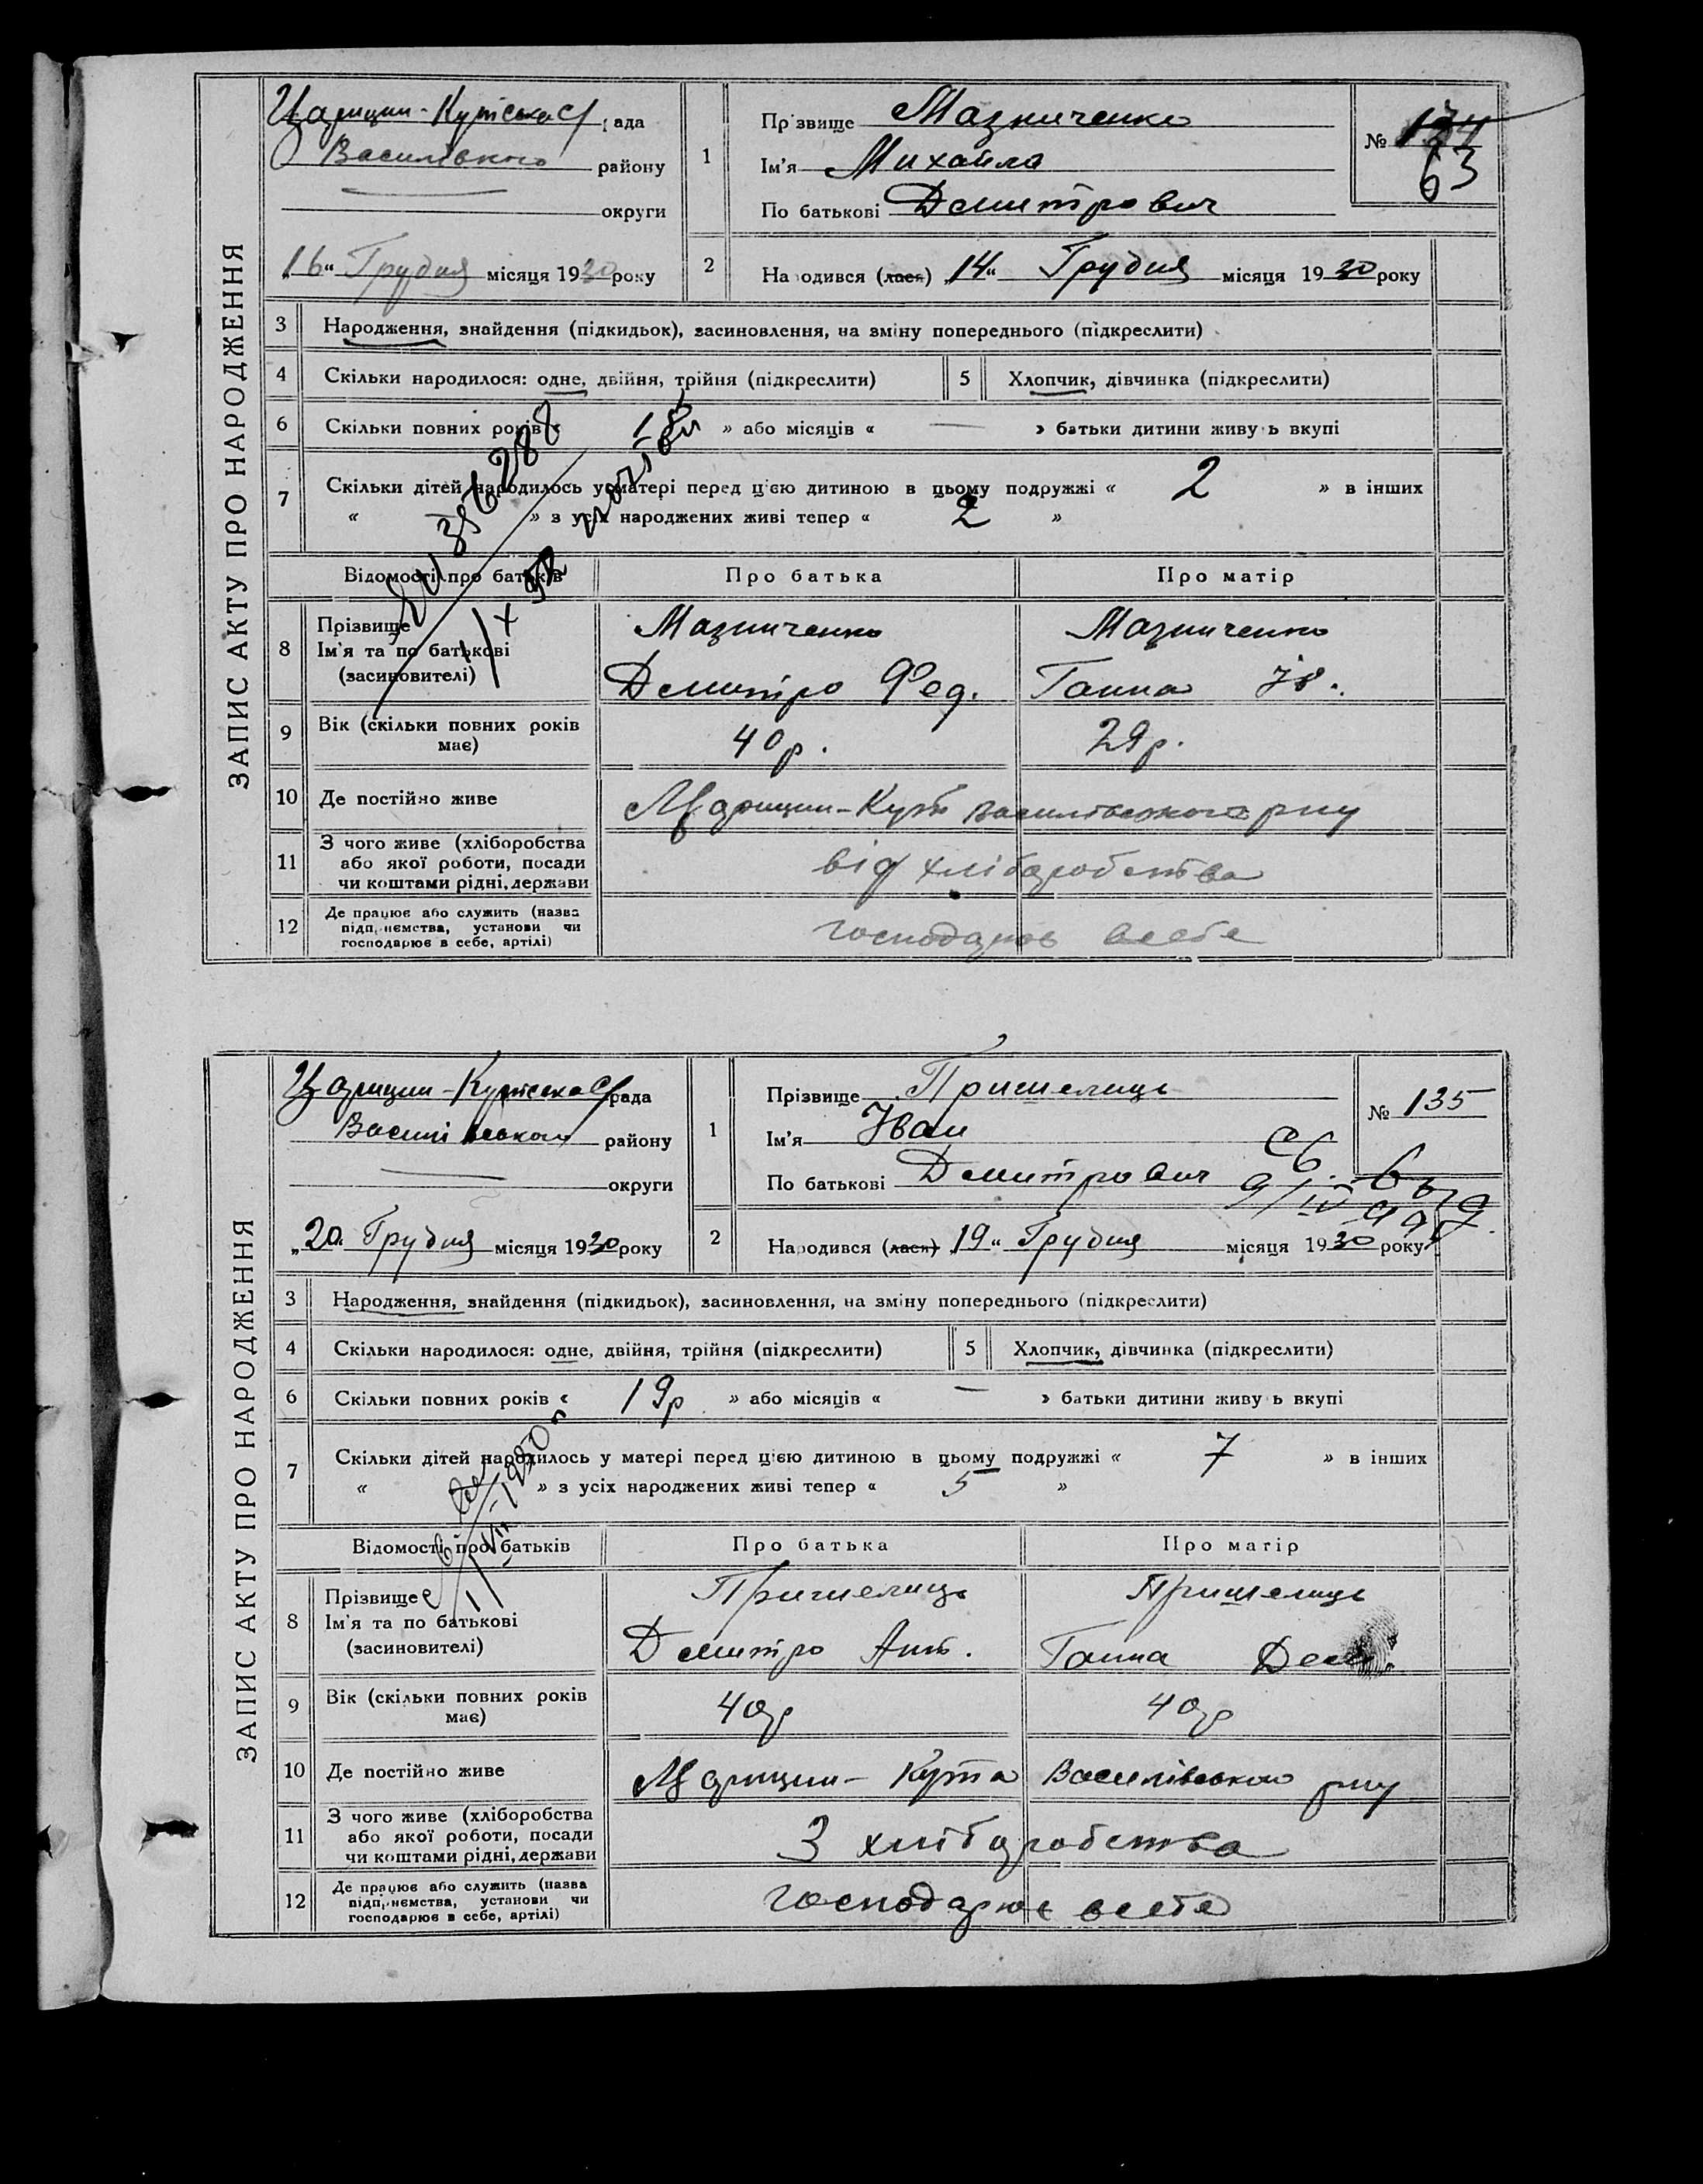 ЗАПИС АКТУ ПРО НАРОДЖЕННЯ
Царицин-Кутська с/рада
Василівського району
округи
„16“ Грудня місяця 1930 року
1
Прізвище Мазниченко
Ім'я Михайло
По батькові Демитрович
№ 134
63
2
Народився (лася) „14“ Грудня місяця 1930 року
3 Народження, знайдення (підкидьок), засиновлення, на зміну попереднього (підкреслити)
4 Скільки народилося: одне, двійня, трійня (підкреслити) 5 Хлопчик, дівчинка (підкреслити)
6 Скільки повних років « » або місяців « — » батьки дитини живуть вкупі
7 Скільки дітей народилось у матері перед цією дитиною в цьому подружжі « 2 » в інших
« » з усіх народжених живі тепер « 2 »
Відомості про батьків Про батька Про матір
8 Прізвище Мазниченко Мазниченко
Ім'я та по батькові
(засиновителі) Демитро Фед. Ганна Ів.
9 Вік (скільки повних років має) 40 р. 29 р.
10 Де постійно живе Царицин-Кут Василівського р-ну
11 З чого живе (хліборобства
або якої роботи, посади
чи коштами рідні, держави від хліборобства
12 Де працює або служить (назва
підприємства, установи чи
господарює в себе, артілі) господарює в себе
ЗАПИС АКТУ ПРО НАРОДЖЕННЯ
Царицин-Кутська с/рада
Василівського району
округи
„20“ Грудня місяця 1930 року
1
Прізвище Пришелиць
Ім'я Іван
По батькові Демитрович
№ 135
2
Народився (лася) „19“ Грудня місяця 1930 року
3 Народження, знайдення (підкидьок), засиновлення, на зміну попереднього (підкреслити)
4 Скільки народилося: одне, двійня, трійня (підкреслити) 5 Хлопчик, дівчинка (підкреслити)
6 Скільки повних років « 19 р » або місяців « — » батьки дитини живуть вкупі
7 Скільки дітей народилось у матері перед цією дитиною в цьому подружжі « 7 » в інших
« » з усіх народжених живі тепер « 5 »
Відомості про батьків Про батька Про матір
8 Прізвище Пришелиць Пришелиць
Ім'я та по батькові
(засиновителі) Демитро Ант. Ганна
9 Вік (скільки повних років має) 40 р 40 р
10 Де постійно живе Царицин-Кута Василівського р-ну
11 З чого живе (хліборобства
або якої роботи, посади
чи коштами рідні, держави З хліборобства
12 Де працює або служить (назва
підприємства, установи чи
господарює в себе, артілі) господарює в себе